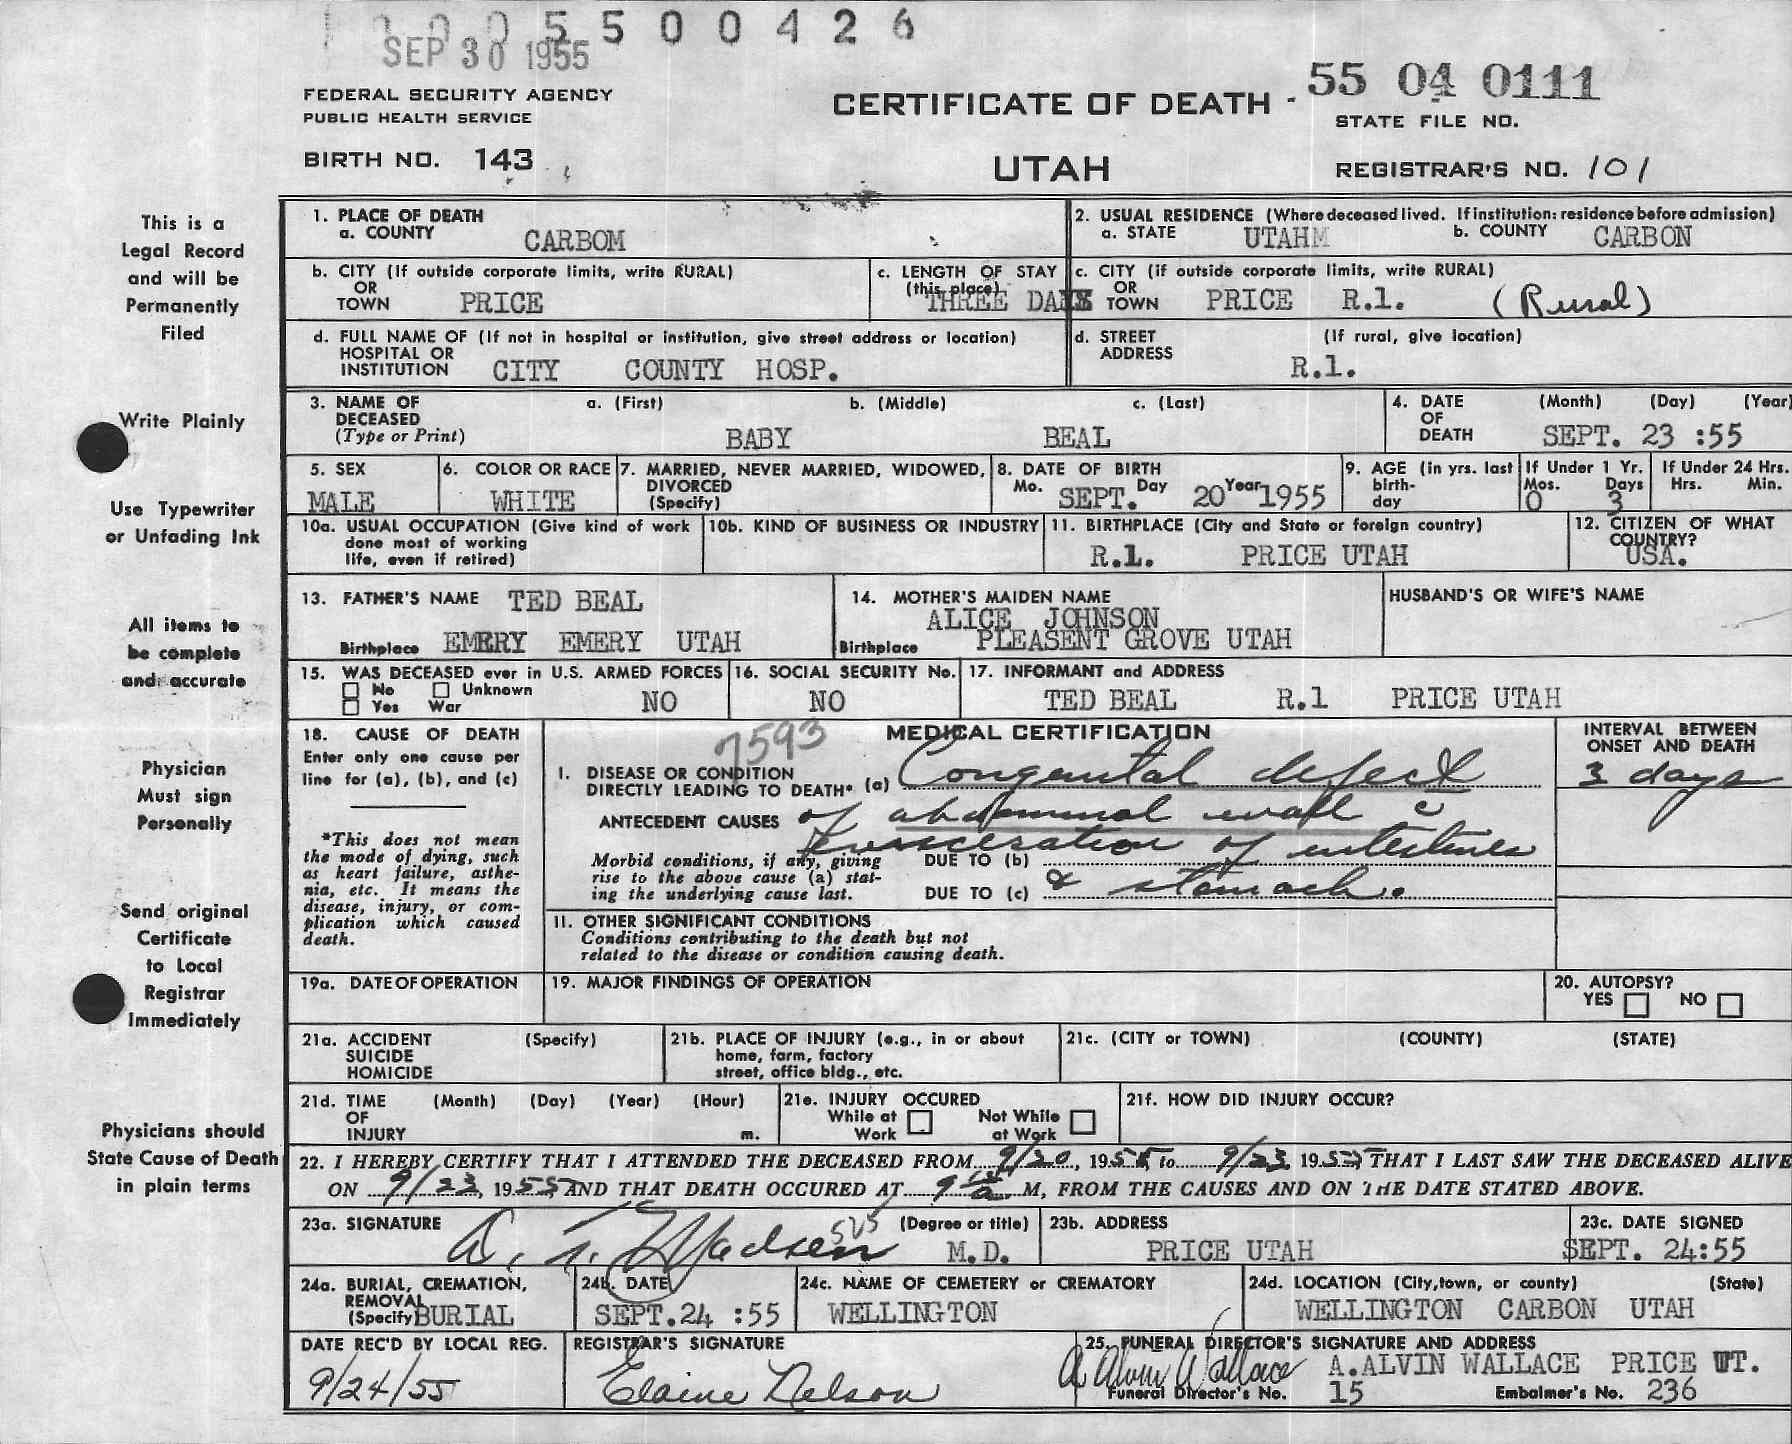 5500426
SEP 30 1955
FEDERAL SECURITY AGENCY
PUBLIC HEALTH SERVICE
BIRTH NO. 143
CERTIFICATE OF DEATH
UTAH
55 04 0111
STATE FILE NO.
REGISTRAR'S NO. 101
This is a
Legal Record
and will be
Permanently
Filed
Write Plainly
Use Typewriter
or Unfading Ink
All items to
be complete
and accurate
Physician
Must sign
Personally
Send original
Certificate
to Local
Registrar
Immediately
Physicians should
State Cause of Death
in plain terms
1. PLACE OF DEATH
a. COUNTY CARBOM
2. USUAL RESIDENCE (Where deceased lived. If institution: residence before admission)
a. STATE UTAHM b. COUNTY CARBON
b. CITY (If outside corporate limits, write RURAL)
OR
TOWN PRICE
c. LENGTH OF STAY
(this place)
THREE DAYS
c. CITY (if outside corporate limits, write RURAL)
OR
TOWN PRICE R.1. (Rural)
d. FULL NAME OF (If not in hospital or institution, give street address or location)
HOSPITAL OR
INSTITUTION CITY COUNTY HOSP.
d. STREET (If rural, give location)
ADDRESS
R.1.
3. NAME OF a. (First) b. (Middle) c. (Last)
DECEASED
(Type or Print) BABY BEAL
4. DATE (Month) (Day) (Year)
OF
DEATH SEPT. 23 :55
5. SEX
MALE
6. COLOR OR RACE
WHITE
7. MARRIED, NEVER MARRIED, WIDOWED,
DIVORCED
(Specify)
8. DATE OF BIRTH
Mo. SEPT. Day 20 Year 1955
9. AGE (in yrs. last
birth-
day
If Under 1 Yr.
Mos. Days
0 3
If Under 24 Hrs.
Hrs. Min.
10a. USUAL OCCUPATION (Give kind of work
done most of working
life, even if retired)
10b. KIND OF BUSINESS OR INDUSTRY
11. BIRTHPLACE (City and State or foreign country)
R.1. PRICE UTAH
12. CITIZEN OF WHAT
COUNTRY?
USA.
13. FATHER'S NAME TED BEAL
Birthplace EMERY EMERY UTAH
14. MOTHER'S MAIDEN NAME
ALICE JOHNSON
Birthplace PLEASENT GROVE UTAH
HUSBAND'S OR WIFE'S NAME
15. WAS DECEASED ever in U.S. ARMED FORCES
No Unknown
Yes War
NO
16. SOCIAL SECURITY No.
NO
17. INFORMANT and ADDRESS
TED BEAL R.1 PRICE UTAH
18. CAUSE OF DEATH
Enter only one cause per
line for (a), (b), and (c)
*This does not mean
the mode of dying, such
as heart failure, asthe-
nia, etc. It means the
disease, injury, or com-
plication which caused
death.
7593
MEDICAL CERTIFICATION
INTERVAL BETWEEN
ONSET AND DEATH
I. DISEASE OR CONDITION
DIRECTLY LEADING TO DEATH* (a) Congenital defect
3 days
ANTECEDENT CAUSES of abdominal wall c
Evisceration of intestines
Morbid conditions, if any, giving DUE TO (b)
rise to the above cause (a) stat-
ing the underlying cause last. DUE TO (c) & stomach.
II. OTHER SIGNIFICANT CONDITIONS
Conditions contributing to the death but not
related to the disease or condition causing death.
19a. DATE OF OPERATION
19. MAJOR FINDINGS OF OPERATION
20. AUTOPSY?
YES NO
21a. ACCIDENT (Specify)
SUICIDE
HOMICIDE
21b. PLACE OF INJURY (e.g., in or about
home, farm, factory
street, office bldg., etc.
21c. (CITY or TOWN) (COUNTY) (STATE)
21d. TIME (Month) (Day) (Year) (Hour)
OF
INJURY m.
21e. INJURY OCCURED
While at Not While
Work at Work
21f. HOW DID INJURY OCCUR?
22. I HEREBY CERTIFY THAT I ATTENDED THE DECEASED FROM 9/20, 1955 to 9/23 1955 THAT I LAST SAW THE DECEASED ALIVE
ON 9/23, 1955 AND THAT DEATH OCCURED AT 9 M, FROM THE CAUSES AND ON THE DATE STATED ABOVE.
23a. SIGNATURE (Degree or title)
Madsen 525 M.D.
23b. ADDRESS
PRICE UTAH
23c. DATE SIGNED
SEPT. 24:55
24a. BURIAL, CREMATION,
REMOVAL
(Specify BURIAL
24b. DATE
SEPT.24 :55
24c. NAME OF CEMETERY or CREMATORY
WELLINGTON
24d. LOCATION (City, town, or county) (State)
WELLINGTON CARBON UTAH
DATE REC'D BY LOCAL REG.
9/24/55
REGISTRAR'S SIGNATURE
Elaine Nelson
25. FUNERAL DIRECTOR'S SIGNATURE AND ADDRESS
A Alvin Wallace A.ALVIN WALLACE PRICE UT.
Funeral Director's No. 15 Embalmer's No. 236